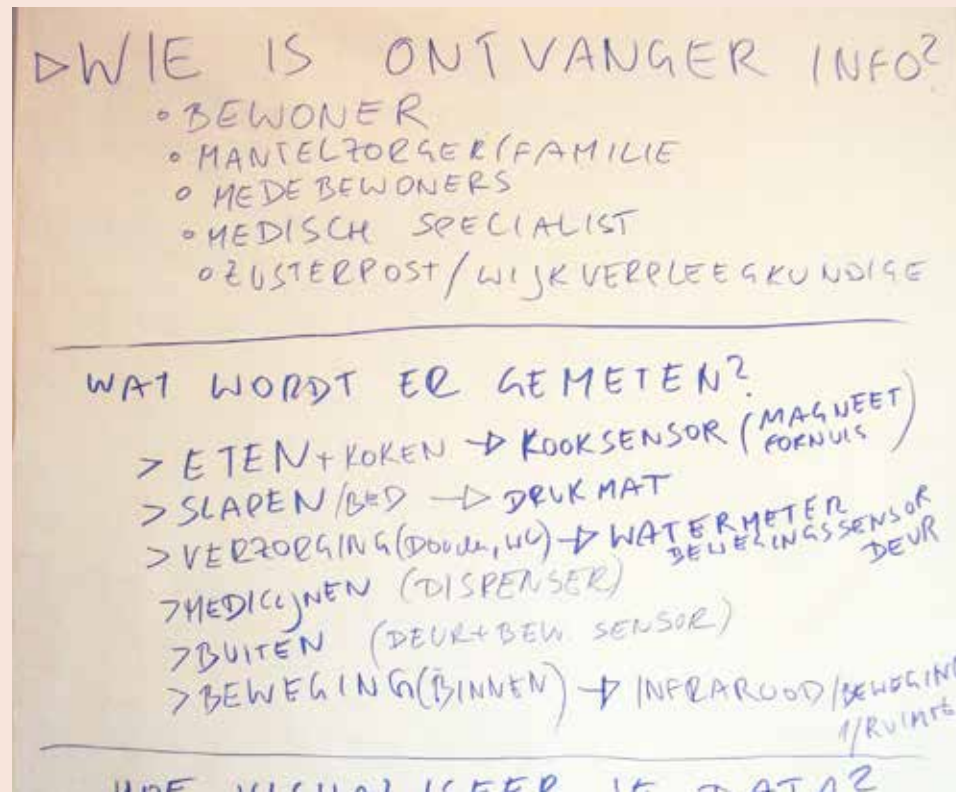 ▷WIE IS ONTVANGER INFO?
• BEWONER
• MANTELZORGER/FAMILIE
• MEDEBEWONERS
• MEDISCH SPECIALIST
• ZUSTERPOST/WIJKVERPLEEGKUNDIGE
WAT WORDT ER GEMETEN?
> ETEN+KOKEN -▷ KOOKSENSOR (MAGNEET FORNUIS)
> SLAPEN/BED -▷ DRUKMAT
> VERZORGING(Douche, WC)-▷ WATERMETER
BEWEGINGSSENSOR
DEUR
>MEDICIJNEN (DISPENSER)
>BUITEN (DEUR+BEW. SENSOR)
>BEWEGING(BINNEN) -▷ INFRAROOD/BEWEGING
1/RUIMTE
HOE VISUALISEER JE DATA?